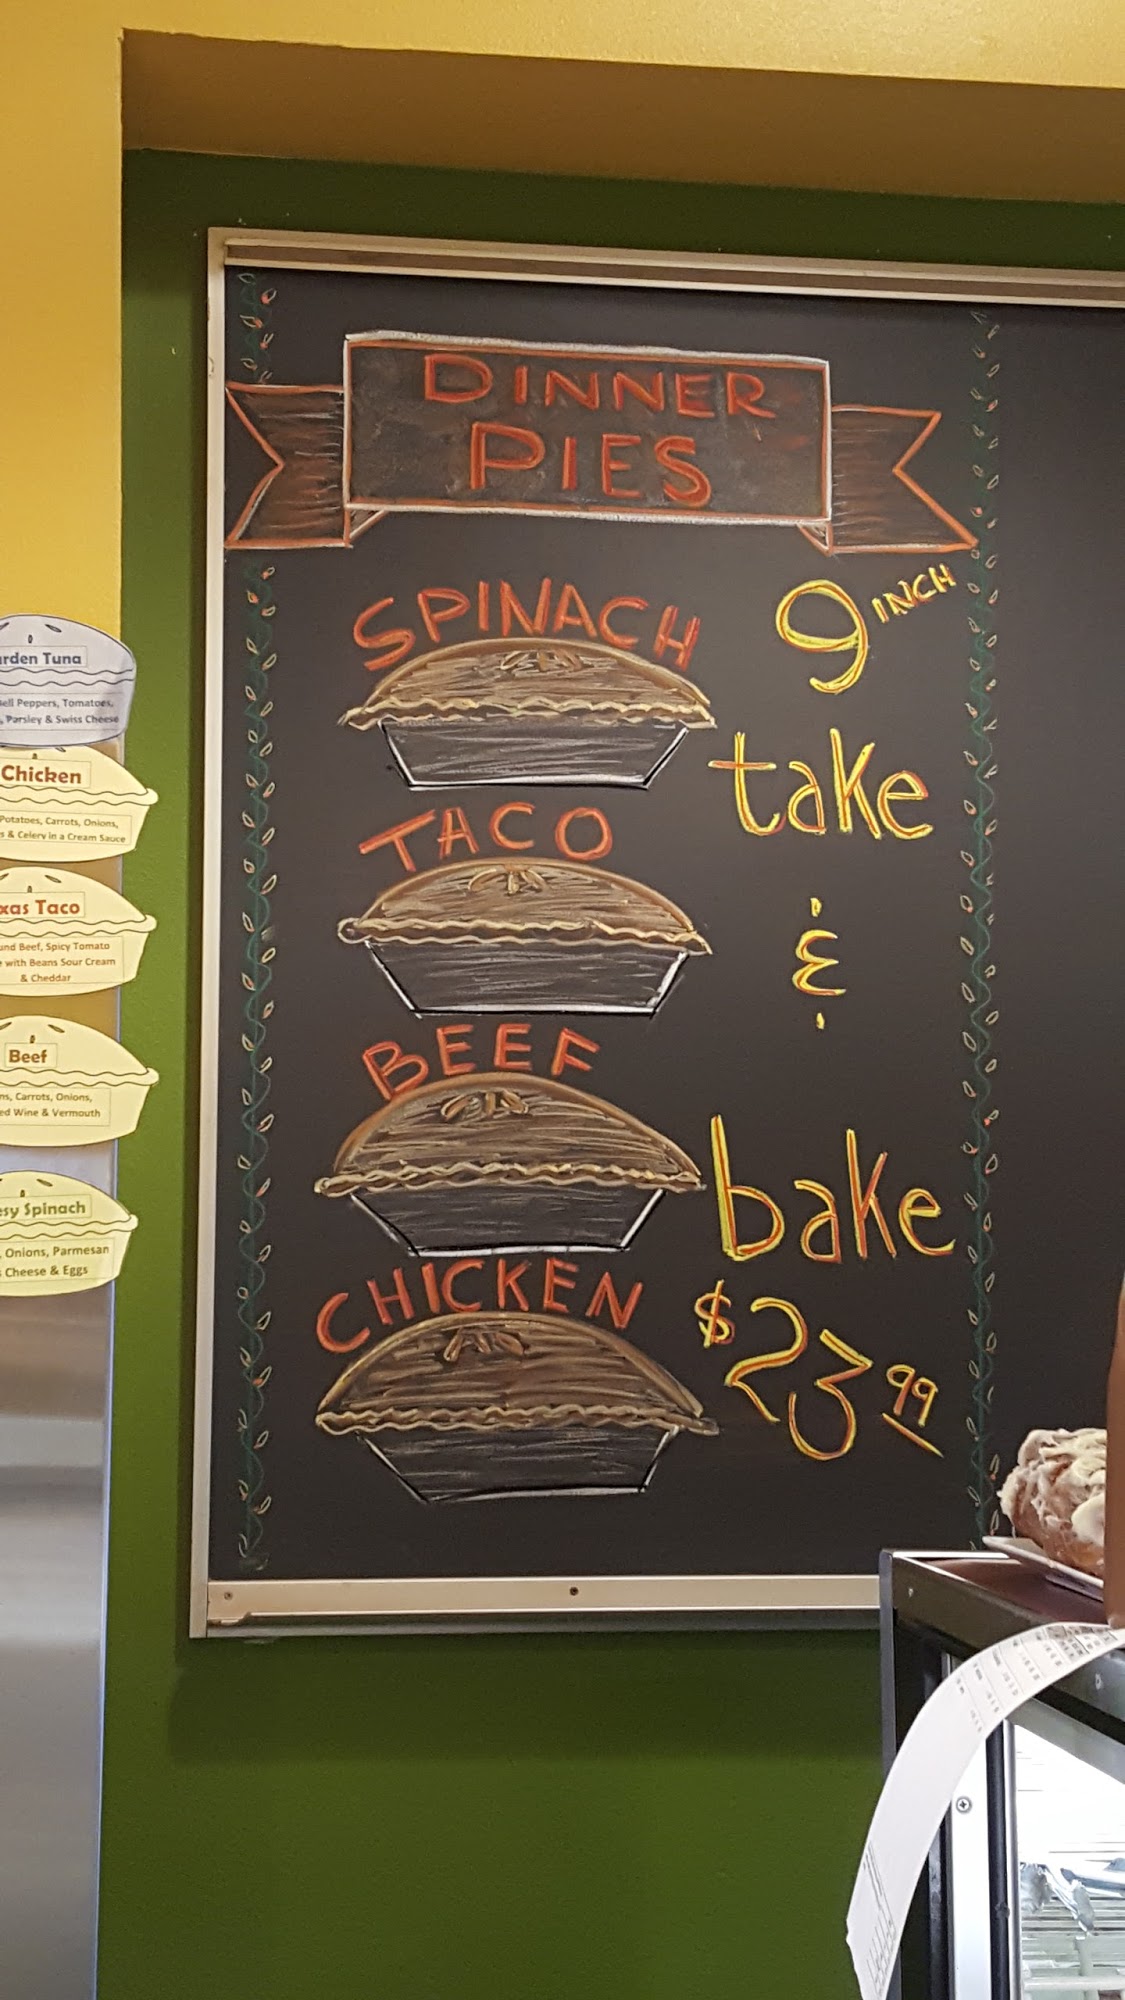 DINNER
PIES
SPINACH
TACO
BEEF
CHICKEN
9 INCH
take
&
bake
$23.99
Tuna
Peppers, Tomatoes,
Parsley & Swiss Cheese
Chicken
Potatoes, Carrots, Onions,
& Celery in a Cream Sauce
Taco
Beef, Spicy Tomato
with Beans Sour Cream
& Cheddar
Beef
Carrots, Onions,
Wine & Vermouth
Spinach
Onions, Parmesan
Cheese & Eggs